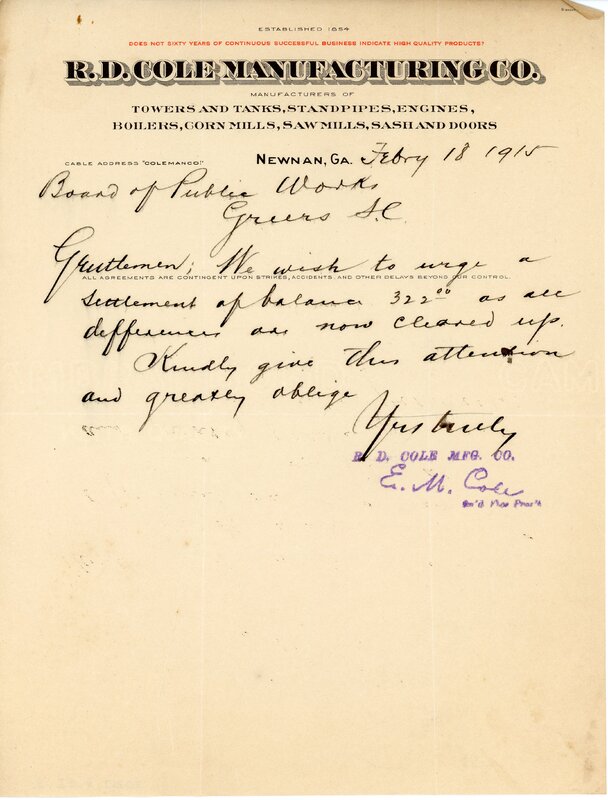 ESTABLISHED 1854
DOES NOT SIXTY YEARS OF CONTINUOUS SUCCESSFUL BUSINESS INDICATE HIGH QUALITY PRODUCTS?
R. D. COLE MANUFACTURING CO.
MANUFACTURERS OF
TOWERS AND TANKS, STANDPIPES, ENGINES,
BOILERS, CORN MILLS, SAW MILLS, SASH AND DOORS
CABLE ADDRESS "COLEMANCO."
NEWNAN, GA. Febry 18 1915
Board of Public Works
Greers S.C.
Gentlemen; We wish to urge a
ALL AGREEMENTS ARE CONTINGENT UPON STRIKES, ACCIDENTS, AND OTHER DELAYS BEYOND OUR CONTROL.
settlement of balance 322.00 as all
differences are now cleared up.
Kindly give this attention
and greatly oblige
Yrs truly
R. D. COLE MFG. CO.
E. M. Cole
Sn'd Vice Pres't